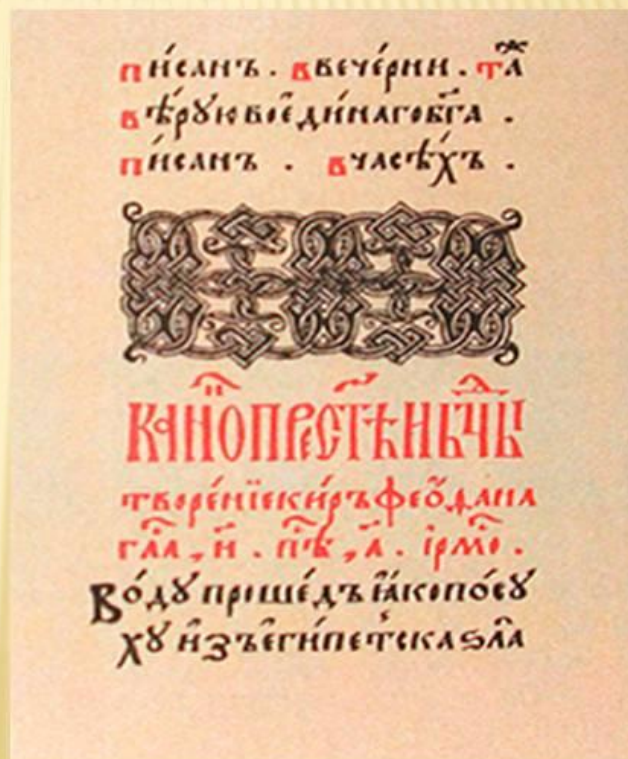 пи́санъ . ввече́рни . таⷤ
вѣ́рꙋю воеди́наго бг҃а .
пи́санъ . вчасѣ́хъ .
канѡⷩ҇ прест҃ѣй бцⷣы
творе́нїе ки́ръ феѡ́фана
глⷭ҇а , и҃ . пѣⷭ҇ , а҃ . ірмо́ⷭ .
Во́дꙋ проше́дъ ꙗ҆́ко по́сꙋ
хꙋ и҆зъ є҆ги́петска ѕла̀